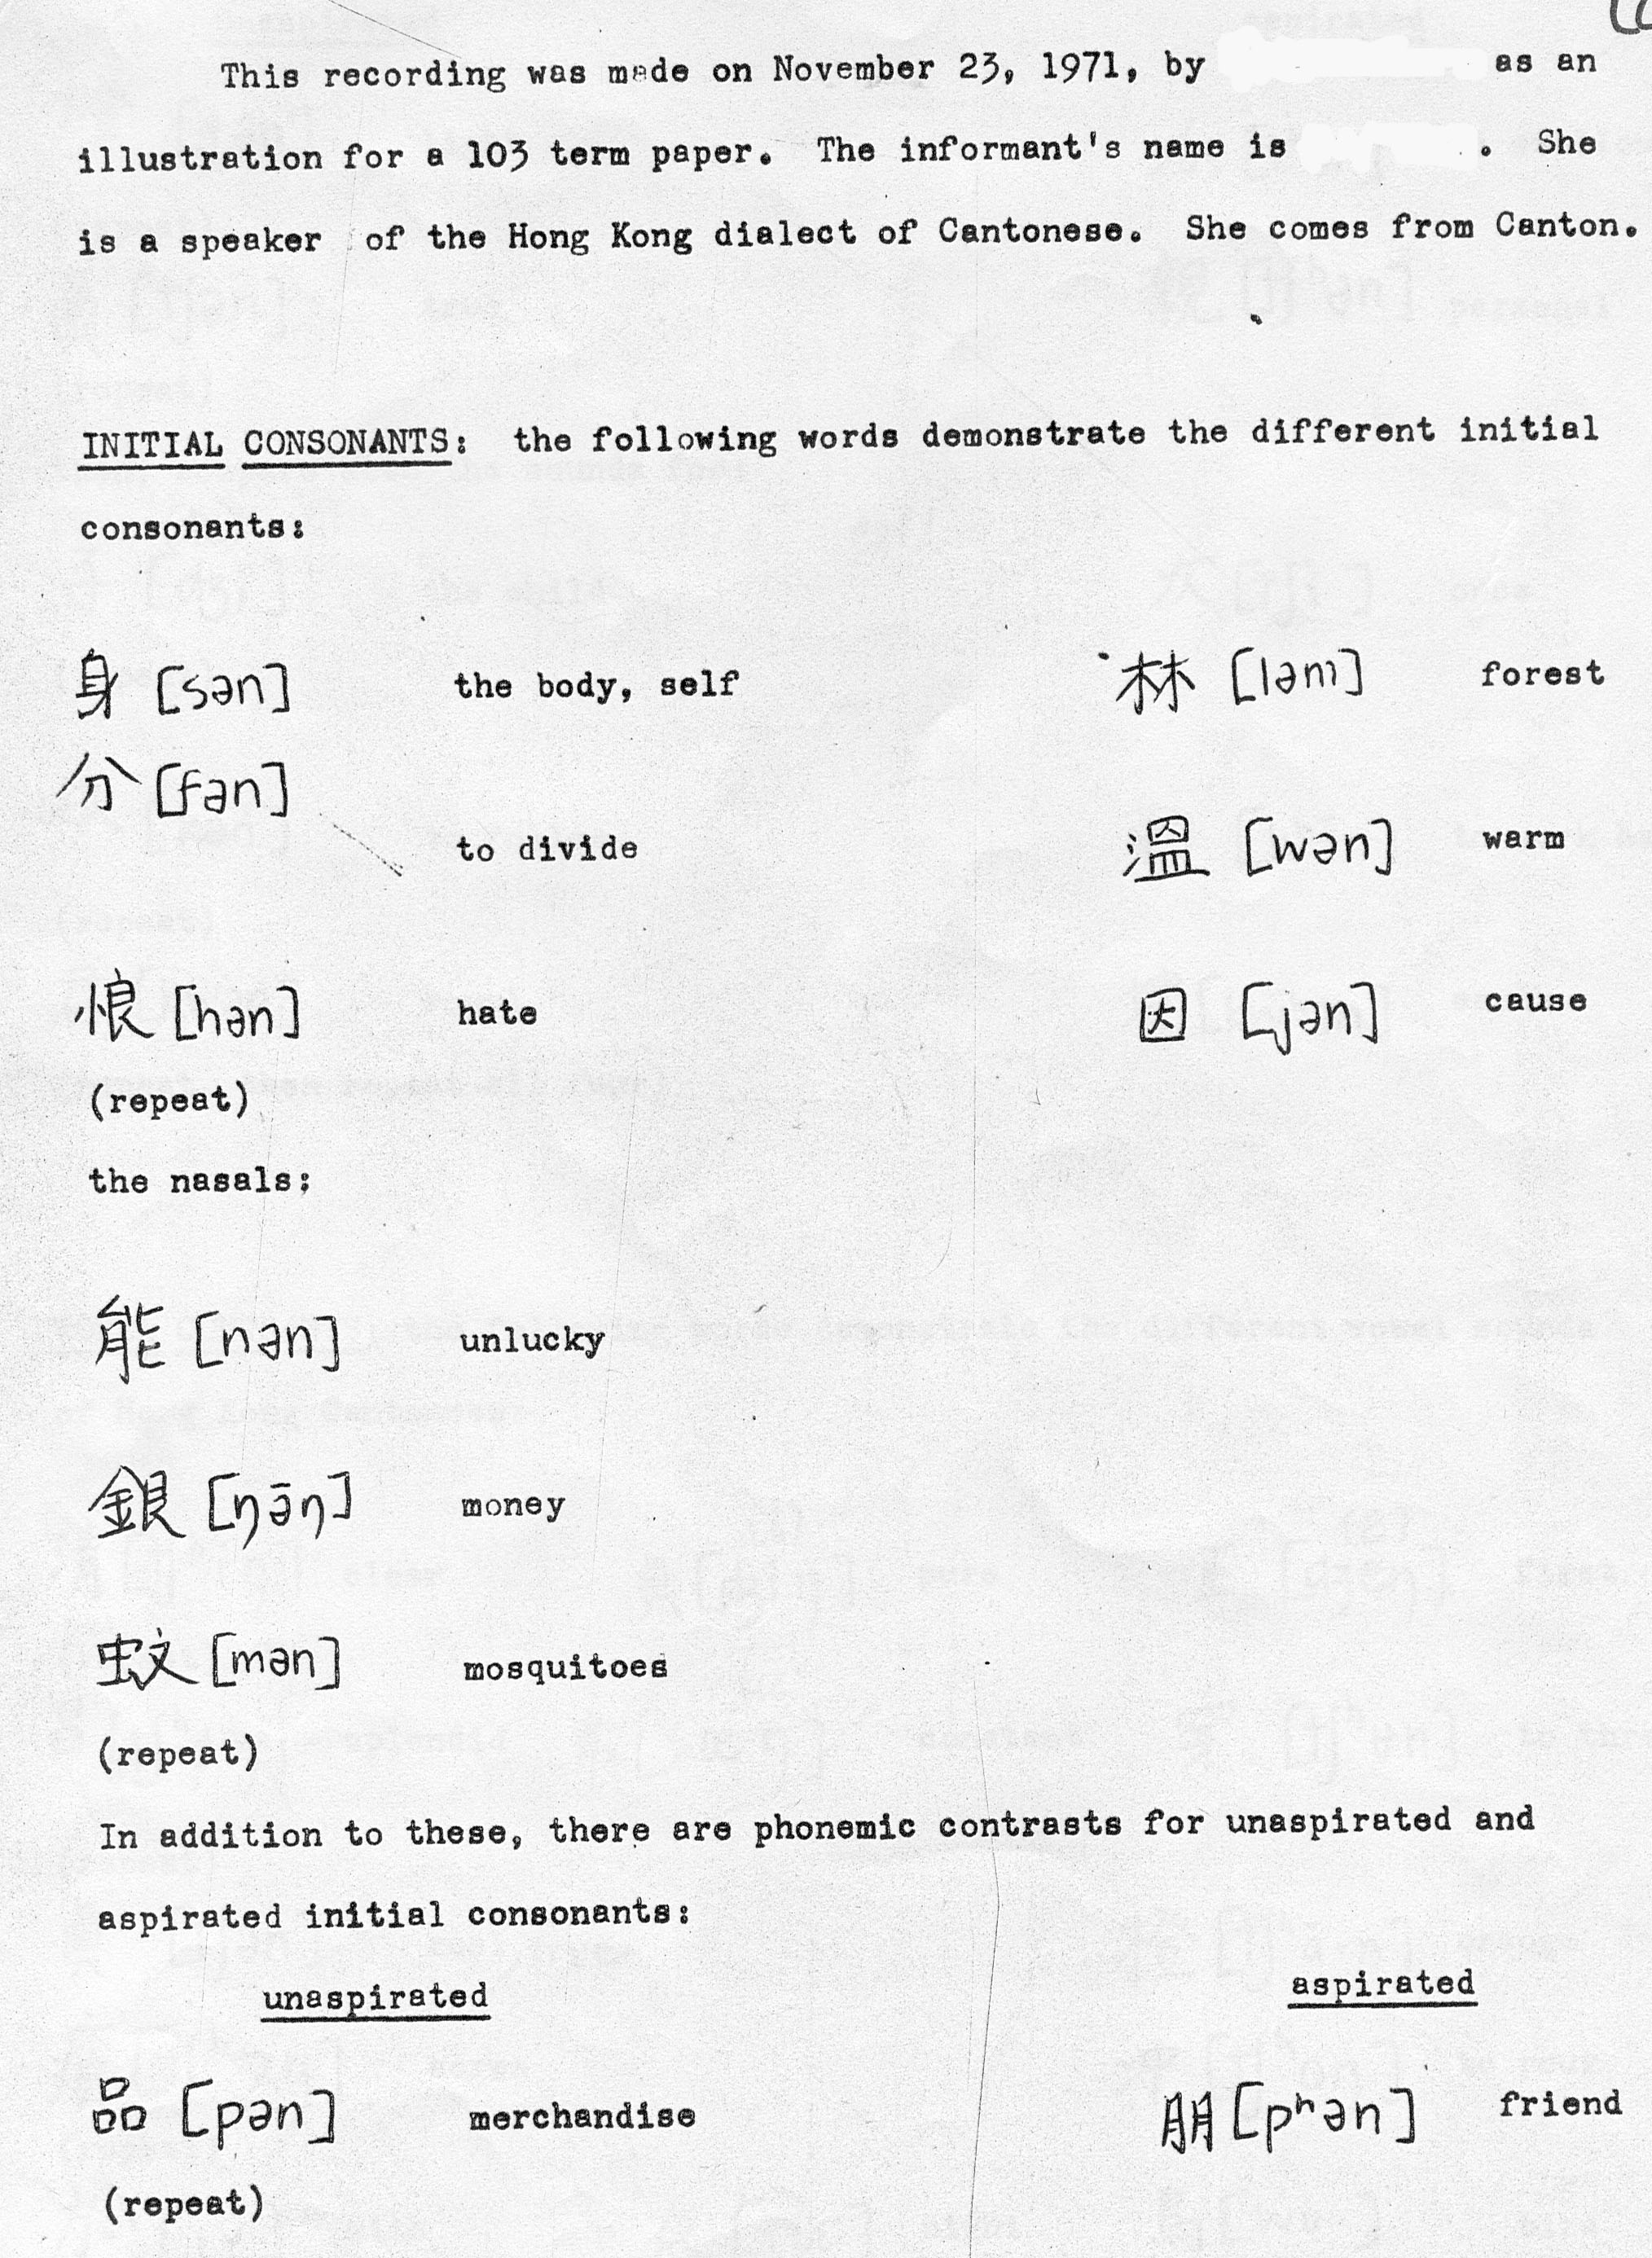 This recording was made on November 23, 1971, by as an
illustration for a 103 term paper. The informant's name is . She
is a speaker of the Hong Kong dialect of Cantonese. She comes from Canton.
INITIAL CONSONANTS: the following words demonstrate the different initial
consonants:
身 [sən] the body, self 林 [ləm] forest
分 [fən] to divide 溫 [wən] warm
恨 [hən] hate 因 [jən] cause
(repeat)
the nasals:
能 [nən] unlucky
銀 [ŋə̄ŋ] money
蚊 [mən] mosquitoes
(repeat)
In addition to these, there are phonemic contrasts for unaspirated and
aspirated initial consonants:
unaspirated aspirated
品 [pən] merchandise 朋 [pʰən] friend
(repeat)